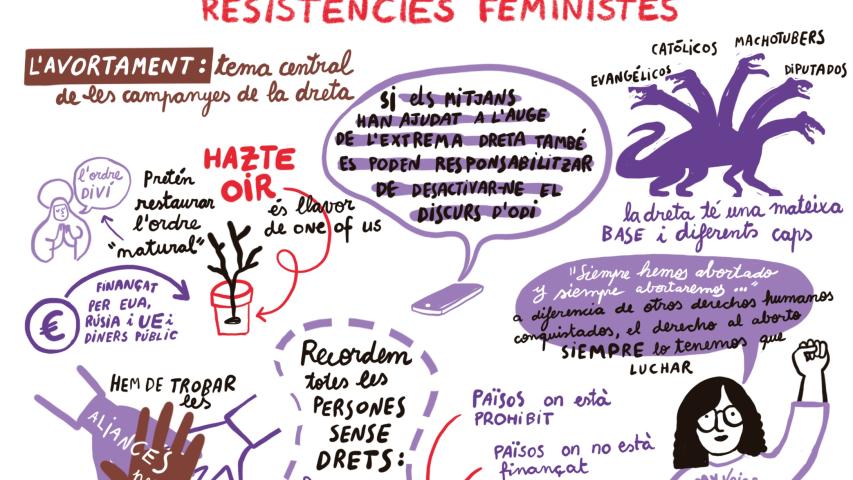 RESISTÈNCIES FEMINISTES
L'AVORTAMENT: tema central
de les campanyes de la dreta
SI els MITJANS
HAN AJUDAT A L'AUGE
DE L'EXTREMA DRETA TAMBÉ
ES PODEN RESPONSABILITZAR
DE DESACTIVAR-NE EL
DISCURS D'ODI
EVANGÉLICOS
CATÓLICOS
MACHOTUBERS
DIPUTADOS
la dreta té una mateixa
BASE i diferents caps
l'ordre
DIVÍ
Pretén
restaurar
l'ordre
"natural"
HAZTE
OIR
és llavor
de one of us
€
FINANÇAT
PER EUA,
RÚSIA i UE i
DINERS PÚBLIC
"Siempre hemos abortado
y siempre abortaremos..."
a diferencia de otros derechos humanos
conquistados, el derecho al aborto
SIEMPRE lo tenemos que
LUCHAR
HEM DE TROBAR
les
ALIANCES
Recordem
totes les
PERSONES
SENSE
DRETS:
PAÏSOS on està
PROHIBIT
PAÏSOS on no està
finançat